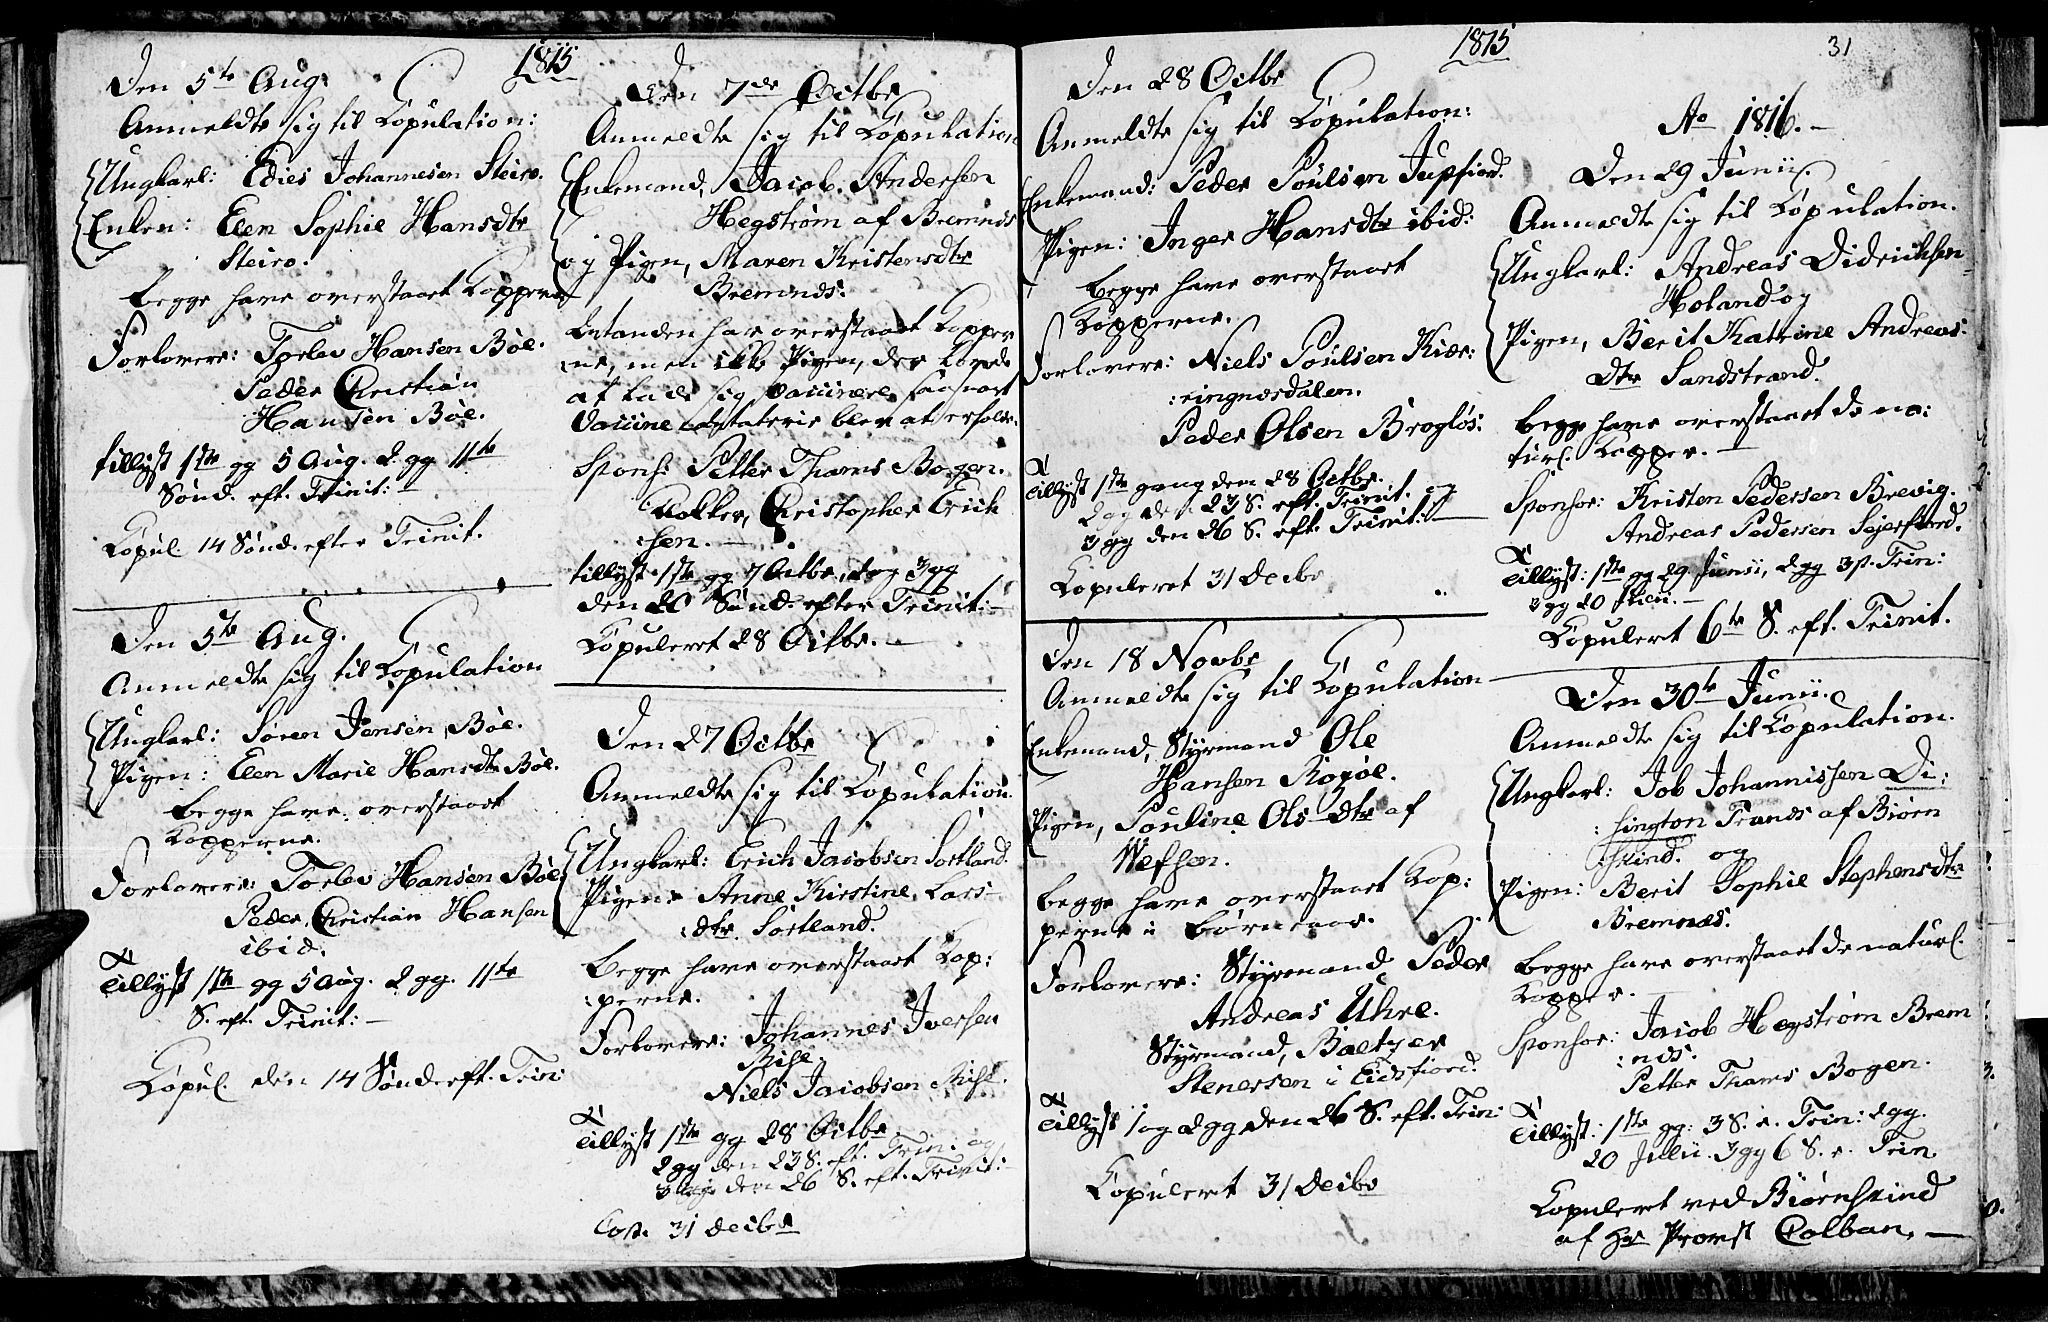 1815
Den 5te Aug.
Anmeldte sig til Copulation:
Ungkarl: Edies Johannesen Steiro.
Enken: Elen Sophie Hansdtr
Steiro.
begge have overstaaet Kopperne
Forlovere: Torlev Hansen Böe.
Peder Christian
Hansen Böe.
tillyst 1ste gg 5 Aug. 2 gg 11te
Sönd. eft. Trinit:
Copul. 14 Sönd. efter Trinit.
Den 5te Aug.
Anmeldte sig til Copulation
Ungkarl: Sören Jensen, Böe.
Pigen: Elen Marie Hansdtr Böe.
begge have overstaaet
Kopperne.
Forlovere: Torlev Hansen Böe
Peder Christian Hansen
ibid.
Tillyst 1ste gg 5 Aug. 2 gg. 11te
S. eft. Trinit:
Copul. den 14 Sönd eft. Trin:
Den 7de Octbr
Anmeldte sig til Copulation
Enkemand, Jacob Andersen
Hegström af Bremnds
og Pigen, Maren Kristensdtr
Bremnds.
har overstaaet Kopper
ne, men ikke Pigen, der lovede
at lade sig vaccinere, saa snart
Vaccine blev at erholde.
Spons: Petter Thams Bogen.
Christopher Erich
:sen.
tillyst 1ste gg 7 Octbr, 2 og 3 gg
den 20 Sönd. efter Trinit:
Copuleret 28 Octbr.
Den 27 Octbr
Anmeldte sig til Copulation.
Ungkarl: Erich Jacobsen Sortland.
Pigen: Anne Kirstine Lars-
:dtr. Sortland.
begge have overstaaet Kop:
:perne.
Forlovere: Johannes Iversen
Rise.
Niels Jacobsen Rise.
Tillyst 1ste gg 28 Octbr
2 gg den 23 S. eft. Trin. og
3 gg. den 26 S. eft. Trinit:
Cop. 31 Decbr
1815
31
Den 28 Octbr
Anmeldte sig til Copulation:
Enkemand: Peder Poulsen Jupfiord.
Pigen: Inger Hansdtr ibid:
begge have overstaaet
Kopperne.
Forlovere: Niels Poulsen Kier:
:ringnesdalen.
Peder Olsen Broglös.
Tillyst 1ste gang den 28 Octbr.
2 gg den 23 S. eft. Trinit. og
3 gg den 26 S. eft. Trinit:
Copuleret 31 Decbr
Den 18 Novbr
Anmeldte sig til Copulation
Enkemand, Styrmand Ole
Hansen
Pigen, Pouline Ols-Dtr af
Wefsen.
begge have overstaaet Kop:
perne i Börneaar.
Forlovere: Styrmand Peder
Andreas Uhre.
Styrmand, Baltzer
Stenersen i Eidsfiord.
Tillyst 1 og 2 gg den 26 S. eft. Trin:
Copuleret 31 Decbr
Ao 1816.
Den 29 Junii.
Anmeldte sig til Copulation.
Ungkarl: Andreas Didrichsen
Holand og
Pigen, Berit Katrine Andreas:
Dtr Sandstrand.
begge have overstaaet de na:
turl. Kopper.
Sponsor: Kristen Pedersen Brevig.
Andreas Pedersen Sejerfiord.
Tillyst: 1ste gg 29 Junii, 2 gg 3 p. Trin:
3 gg 20 Julii.
Copulert 6te S. eft. Trinit.
Den 30te Junii.
Anmeldte sig til Copulation.
Ungkarl: Job Johannissen Di:
:hington Trands af Biörn
:skind. og
Pigen: Berit Sophie Stephensdtr
Bremnæs.
begge have overstaaet de naturl.
Kopper.
Sponsor: Jacob Hegström Brem
:nds.
Petter Thams Bogen.
Tillyst: 1ste gg: 3 S. e. Trin: 2 gg.
20 Julii. 3 gg 6 S. e. Trin
Copuleret ved Biörnskind
af Hr Provst Colban.